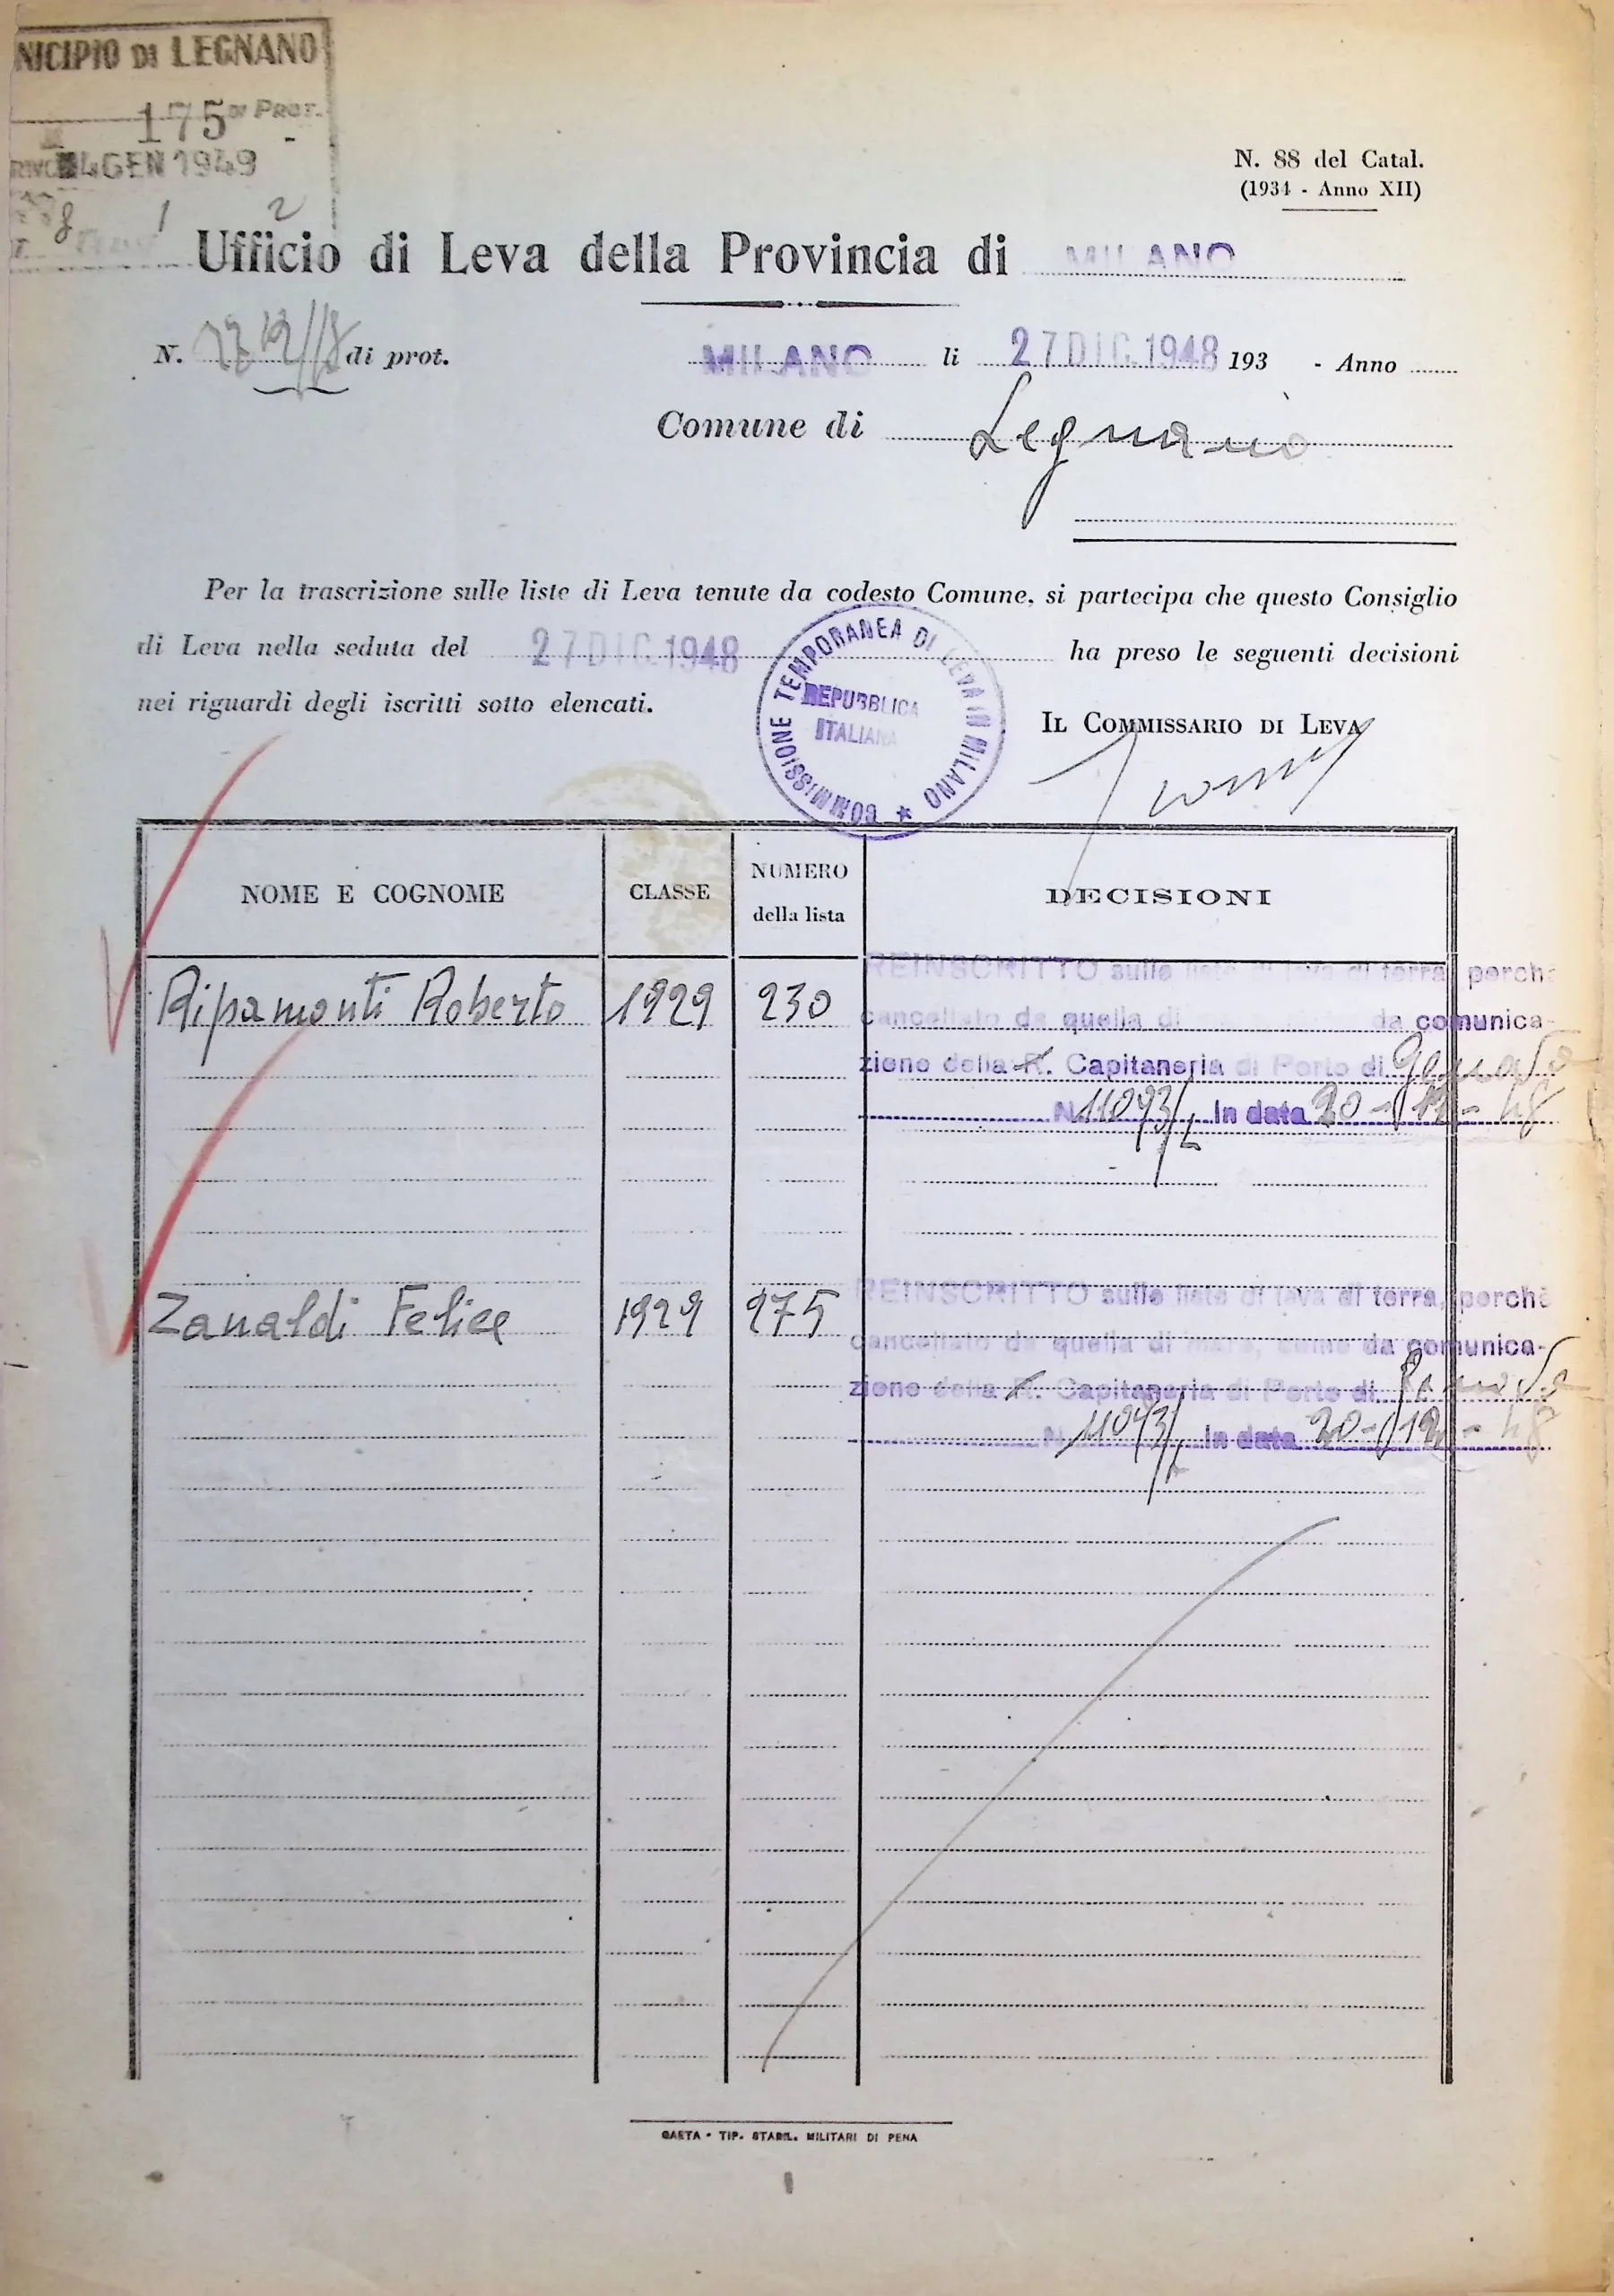 NICIPIO DI LEGNANO
175 DI PROT.
4 GEN 1949
8 1 2
N. 88 del Catal.
(1934 - Anno XII)
Ufficio di Leva della Provincia di MILANO
N. di prot.
MILANO li 27 DIC. 1948 193 - Anno
Comune di Legnano
Per la trascrizione sulle liste di Leva tenute da codesto Comune, si partecipa che questo Consiglio
di Leva nella seduta del 27 DIC. 1948 ha preso le seguenti decisioni
nei riguardi degli iscritti sotto elencati.
COMMISSIONE TEMPORANEA DI LEVA IN MILANO
REPUBBLICA
ITALIANA
IL COMMISSARIO DI LEVA
NOME E COGNOME CLASSE NUMERO della lista DECISIONI
Ripamonti Roberto 1929 230 REINSCRITTO sulle liste di leva di terra, perchè
cancellato da quella di da comunica-
zione della R. Capitaneria di Porto di Genova
N. 11093/L In data 20-12-48
Zanaldi Felice 1929 275 REINSCRITTO sulle liste di leva di terra, perchè
cancellato da quella di mare, come da comunica-
zione della R. Capitaneria di Porto di Genova
N. 11093/L In data 20-12-48
GAETA - TIP. STABIL. MILITARI DI PENA